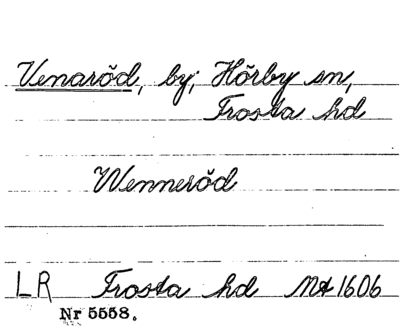 Venaröd, by; Hörby sn,
Frosta hd
Wenneröd
LR Frosta hd Mt 1606
Nr 5558.